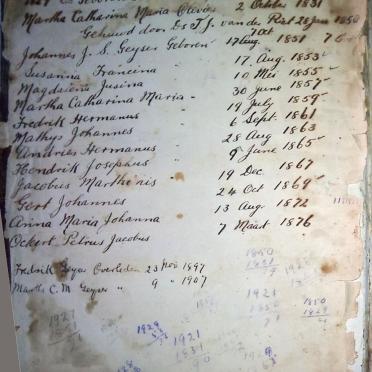 Martha Catharina Maria Olevier 2 October 1831
Gehuwd door Ds T.J. van der Riet 28 Jan 1850
7 Oct
Johannes J. S. Geyser Geboren 17 Aug 1851
Susanna Francina " 17 Aug. 1853
Magdalena Jusina 10 Mei 1855
Martha Catharina Maria 30 June 1857
Fredrik Hermanus 19 July 1859
Mathys Johannes 6 Sept. 1861
Andries Hermanus 28 Aug 1863
Hendrik Josephus 9 June 1865
Jacobus Marthenis 19 Dec 1867
Gert Johannes 24 Oct 1869
Anna Maria Johanna 13 Aug. 1872
Ockert Petrus Jacobus 7 Maart 1876
Fredrik Geyser Overleden 23 Nov 1897
Martha C. M Geyser " 9 " 1907
1850
1831
1921
1850
1829
1927
1851
1929
1921
1831
90
1852
1929